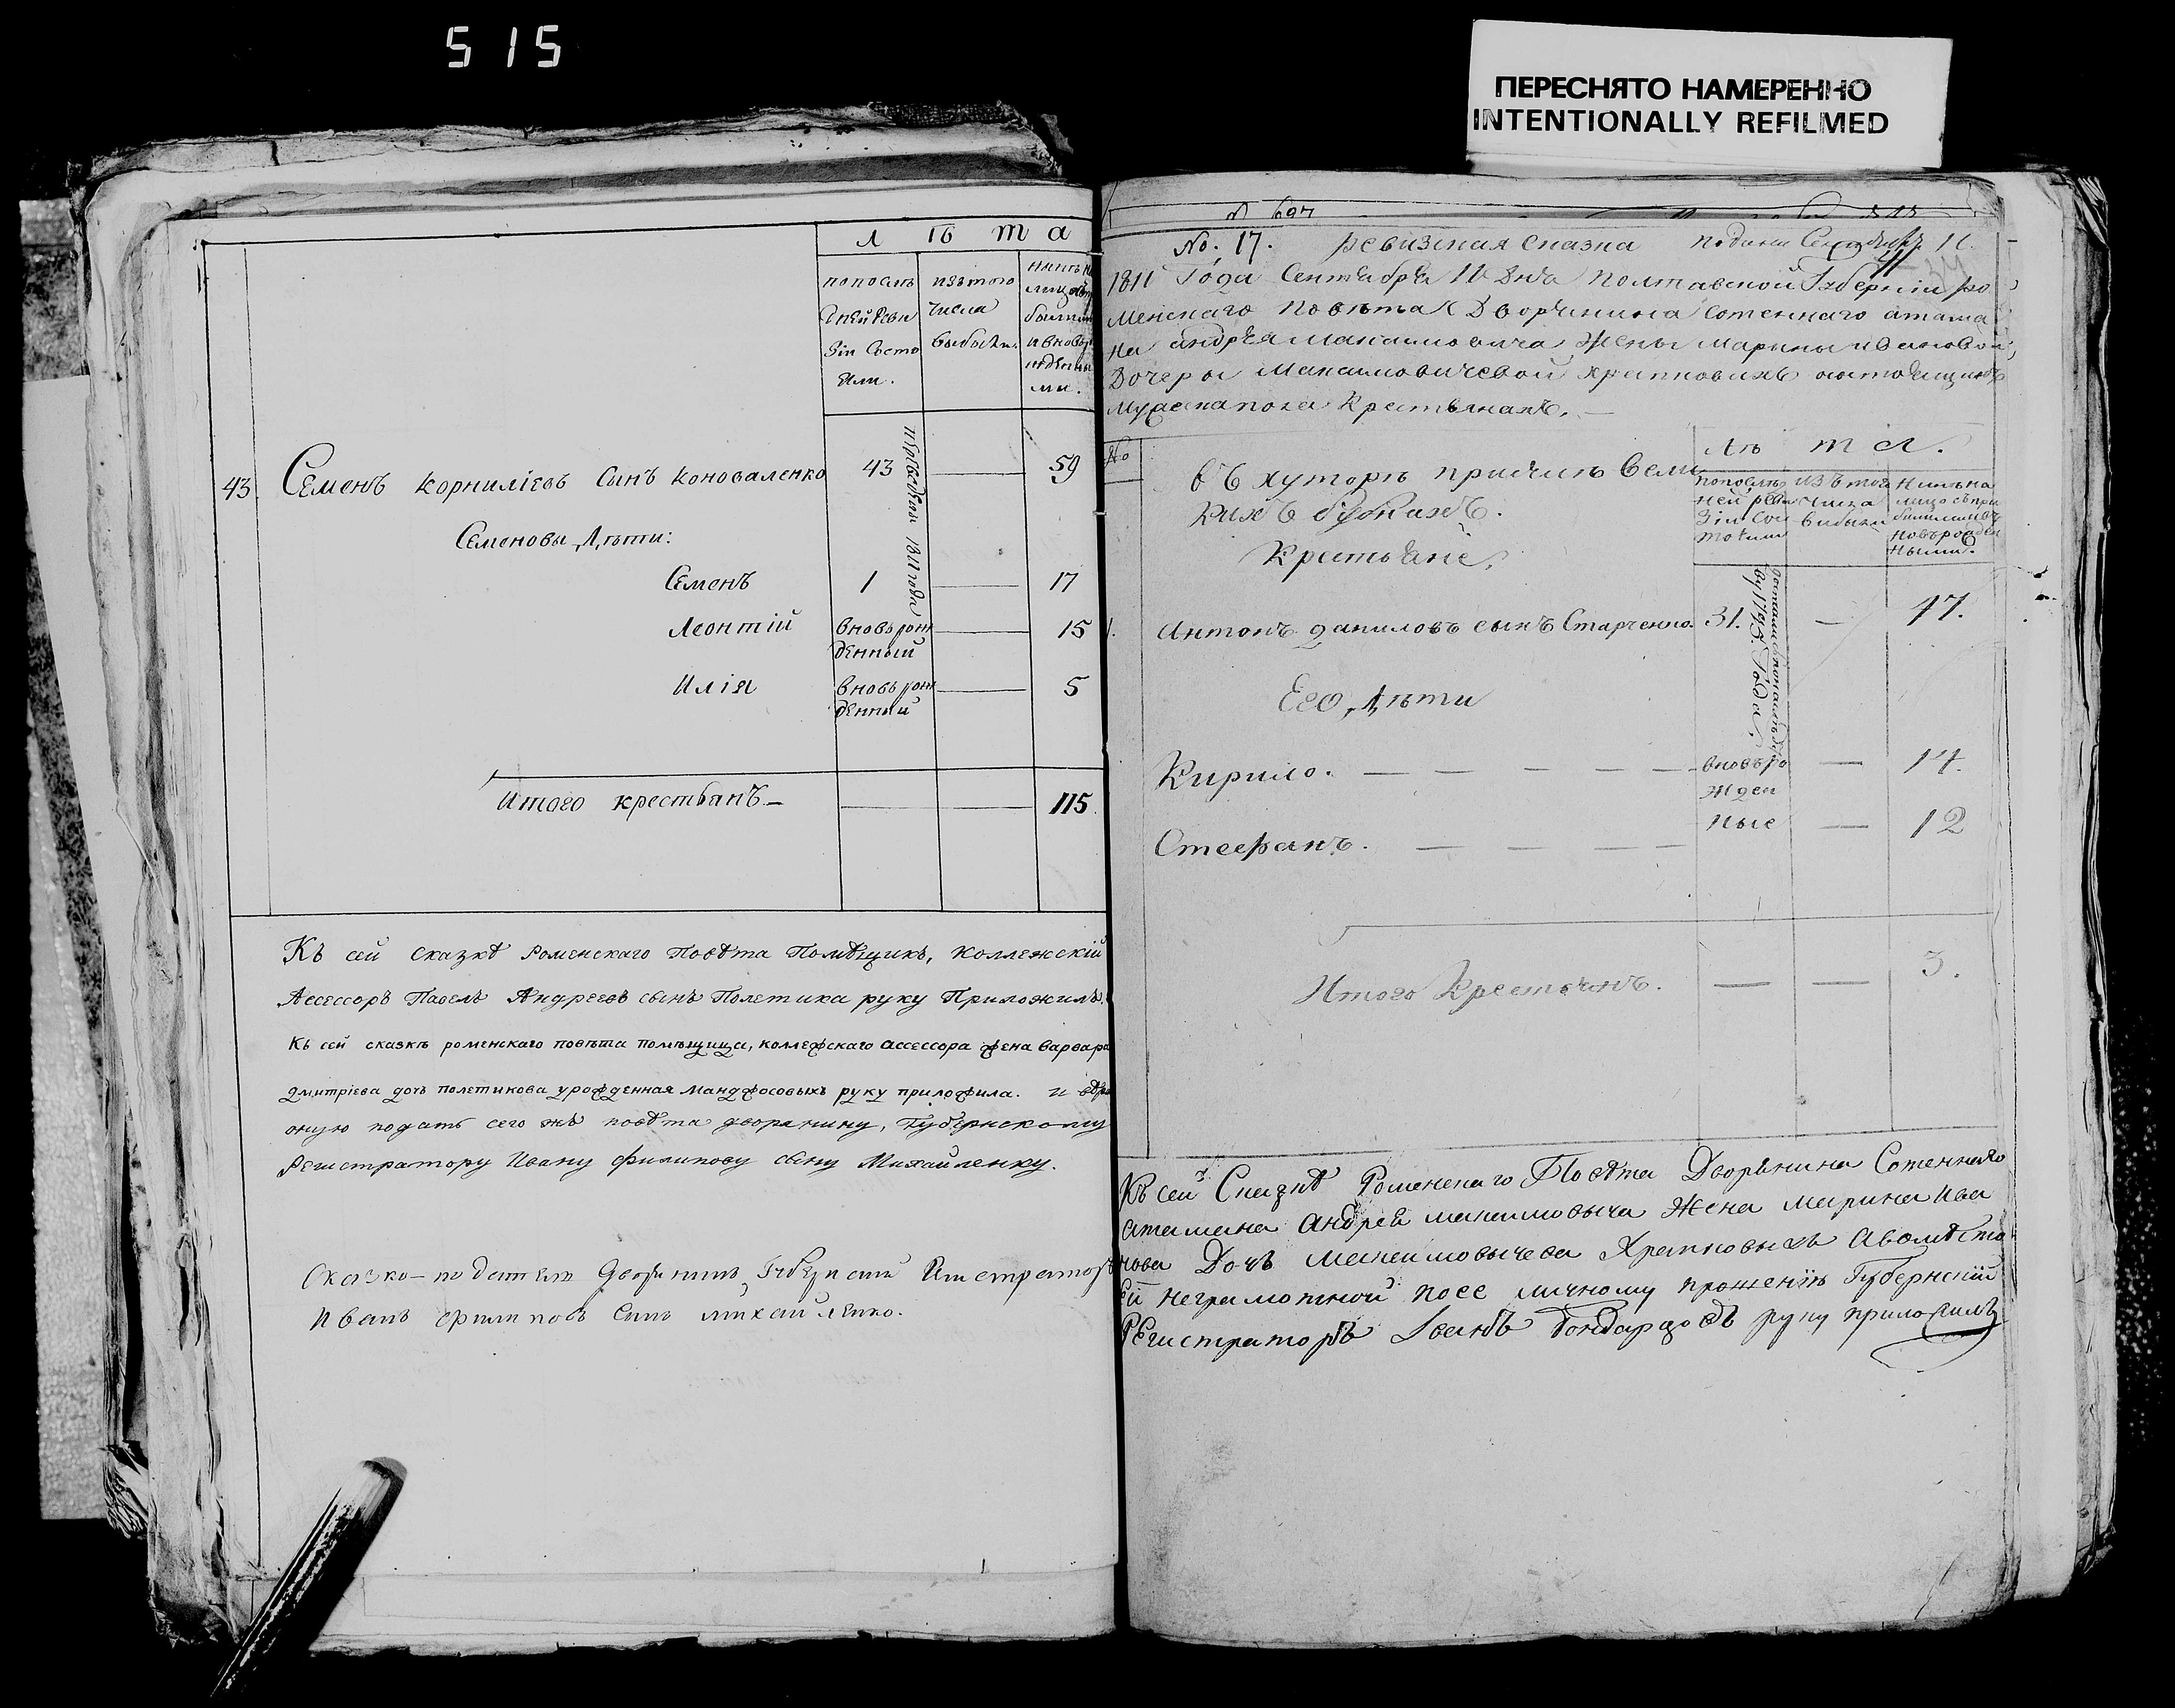 515
ПЕРЕСНЯТО НАМЕРЕННО
INTENTIONALLY REFILMED
Л Ѣ Т А
попослѣ
дней Реви
зіи Состо
яли.
изътого
числа
выбыли.
43. Семенъ Корниліевъ Сынъ Коноваленко 43 59
переведенъ 1811 года
Семеновы Дѣти:
Семенъ 1 17
Леонтій вновьрож 15
денный
Илія вновьрож 5
денный
Итого крестьянъ 115
Къ сей Сказкѣ Роменскаго Повѣта Помѣщикъ, Коллежскій
Ассессоръ Павелъ Андреевъ сынъ Полетика руку Приложилъ.
Къ сей сказкѣ роменскаго повѣта помѣщица, коллежскаго ассессора жена варвара
дмитріева дочь полетикова урожденная манджосовыхъ руку приложила. и
оную подать сего жъ повѣта дворянину, Губернскому
Регистратору Ивану филипову сыну Михайленку.
Сказко-податель дворянинъ, Губернскій Регистраторъ
Иванъ филиповъ Сынъ михайленко.
№ 697
No. 17. ревизская сказка подана Сентября 11.
1811 Года Сентября 11 дня Полтавской Губерніи ро
менскаго повѣта Дворянина Сотеннаго атама
на андрея Максимовича Жены Марины ивановой
Дочеры Максимовичевой
Крестьянахъ.
№
въ хуторѣ при
Лѣ т а.
попослѣд
ней реви
зіи Сос
тояли
изъ того
числа
выбыли
Нынѣ на
лицо съпри
былими и
новърожден
ными.
Крестьяне.
1. Антонъ даниловъ сынъ Старченко. 31. — 47.
Его Дѣти
Кирило. — — — — — вновьро — 14.
жден
Стефанъ. — — — — ные — 12
Итого Крестьянъ. — — 3.
Къ сей Сказкѣ Роменскаго Повѣта Дворянина Сотеннаго
атамана андрея максимовыча Жена марина ива
нова Дочь максимовычева
ей неграмотной по ее личному прошенію Губернскій
РЕгистраторъ Іванъ Бондар руку приложилъ